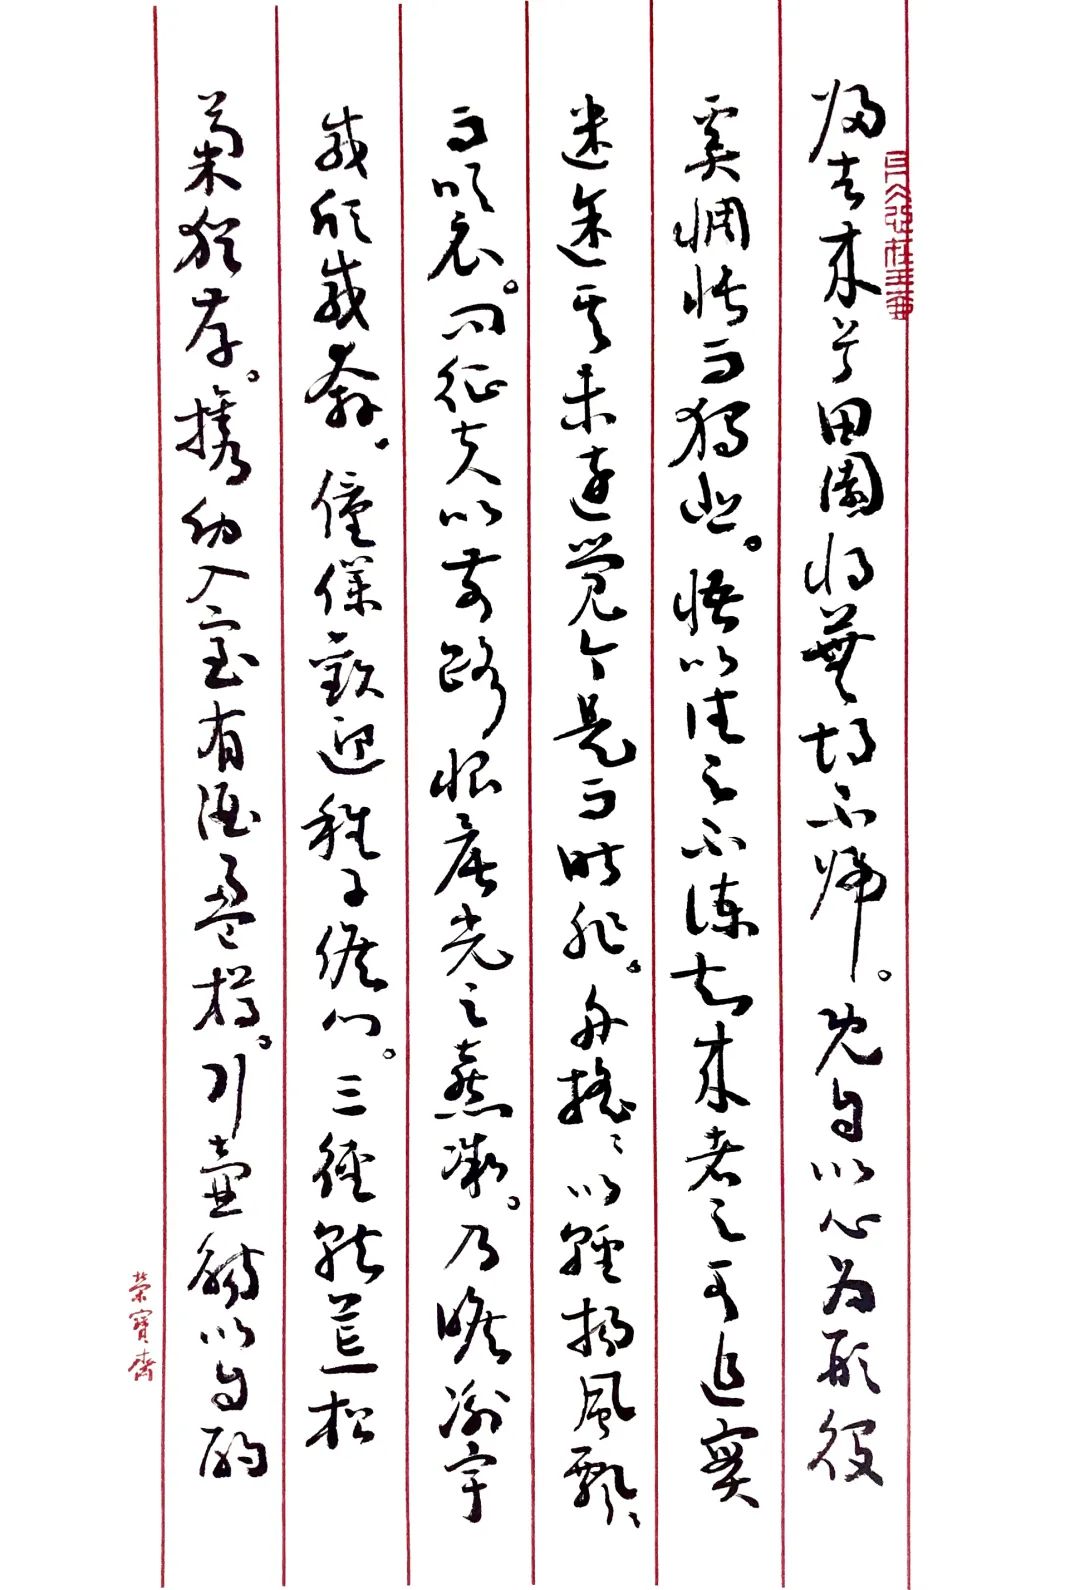 歸去来兮田園将蕪胡不歸。既自以心为形役
奚惆悵而獨悲。悟以往之不諫知来者之可追實
迷途其未遠覺今是而昨非。舟摇〻以輕揚風飄〻
而吹衣。問征夫以前路恨晨光之熹微。乃瞻衡宇
載欣載奔。僮僕歡迎稚子候门。三徑就荒松
菊猶存。攜幼入室有酒盈樽。引壺觴以自酌
榮寶齋